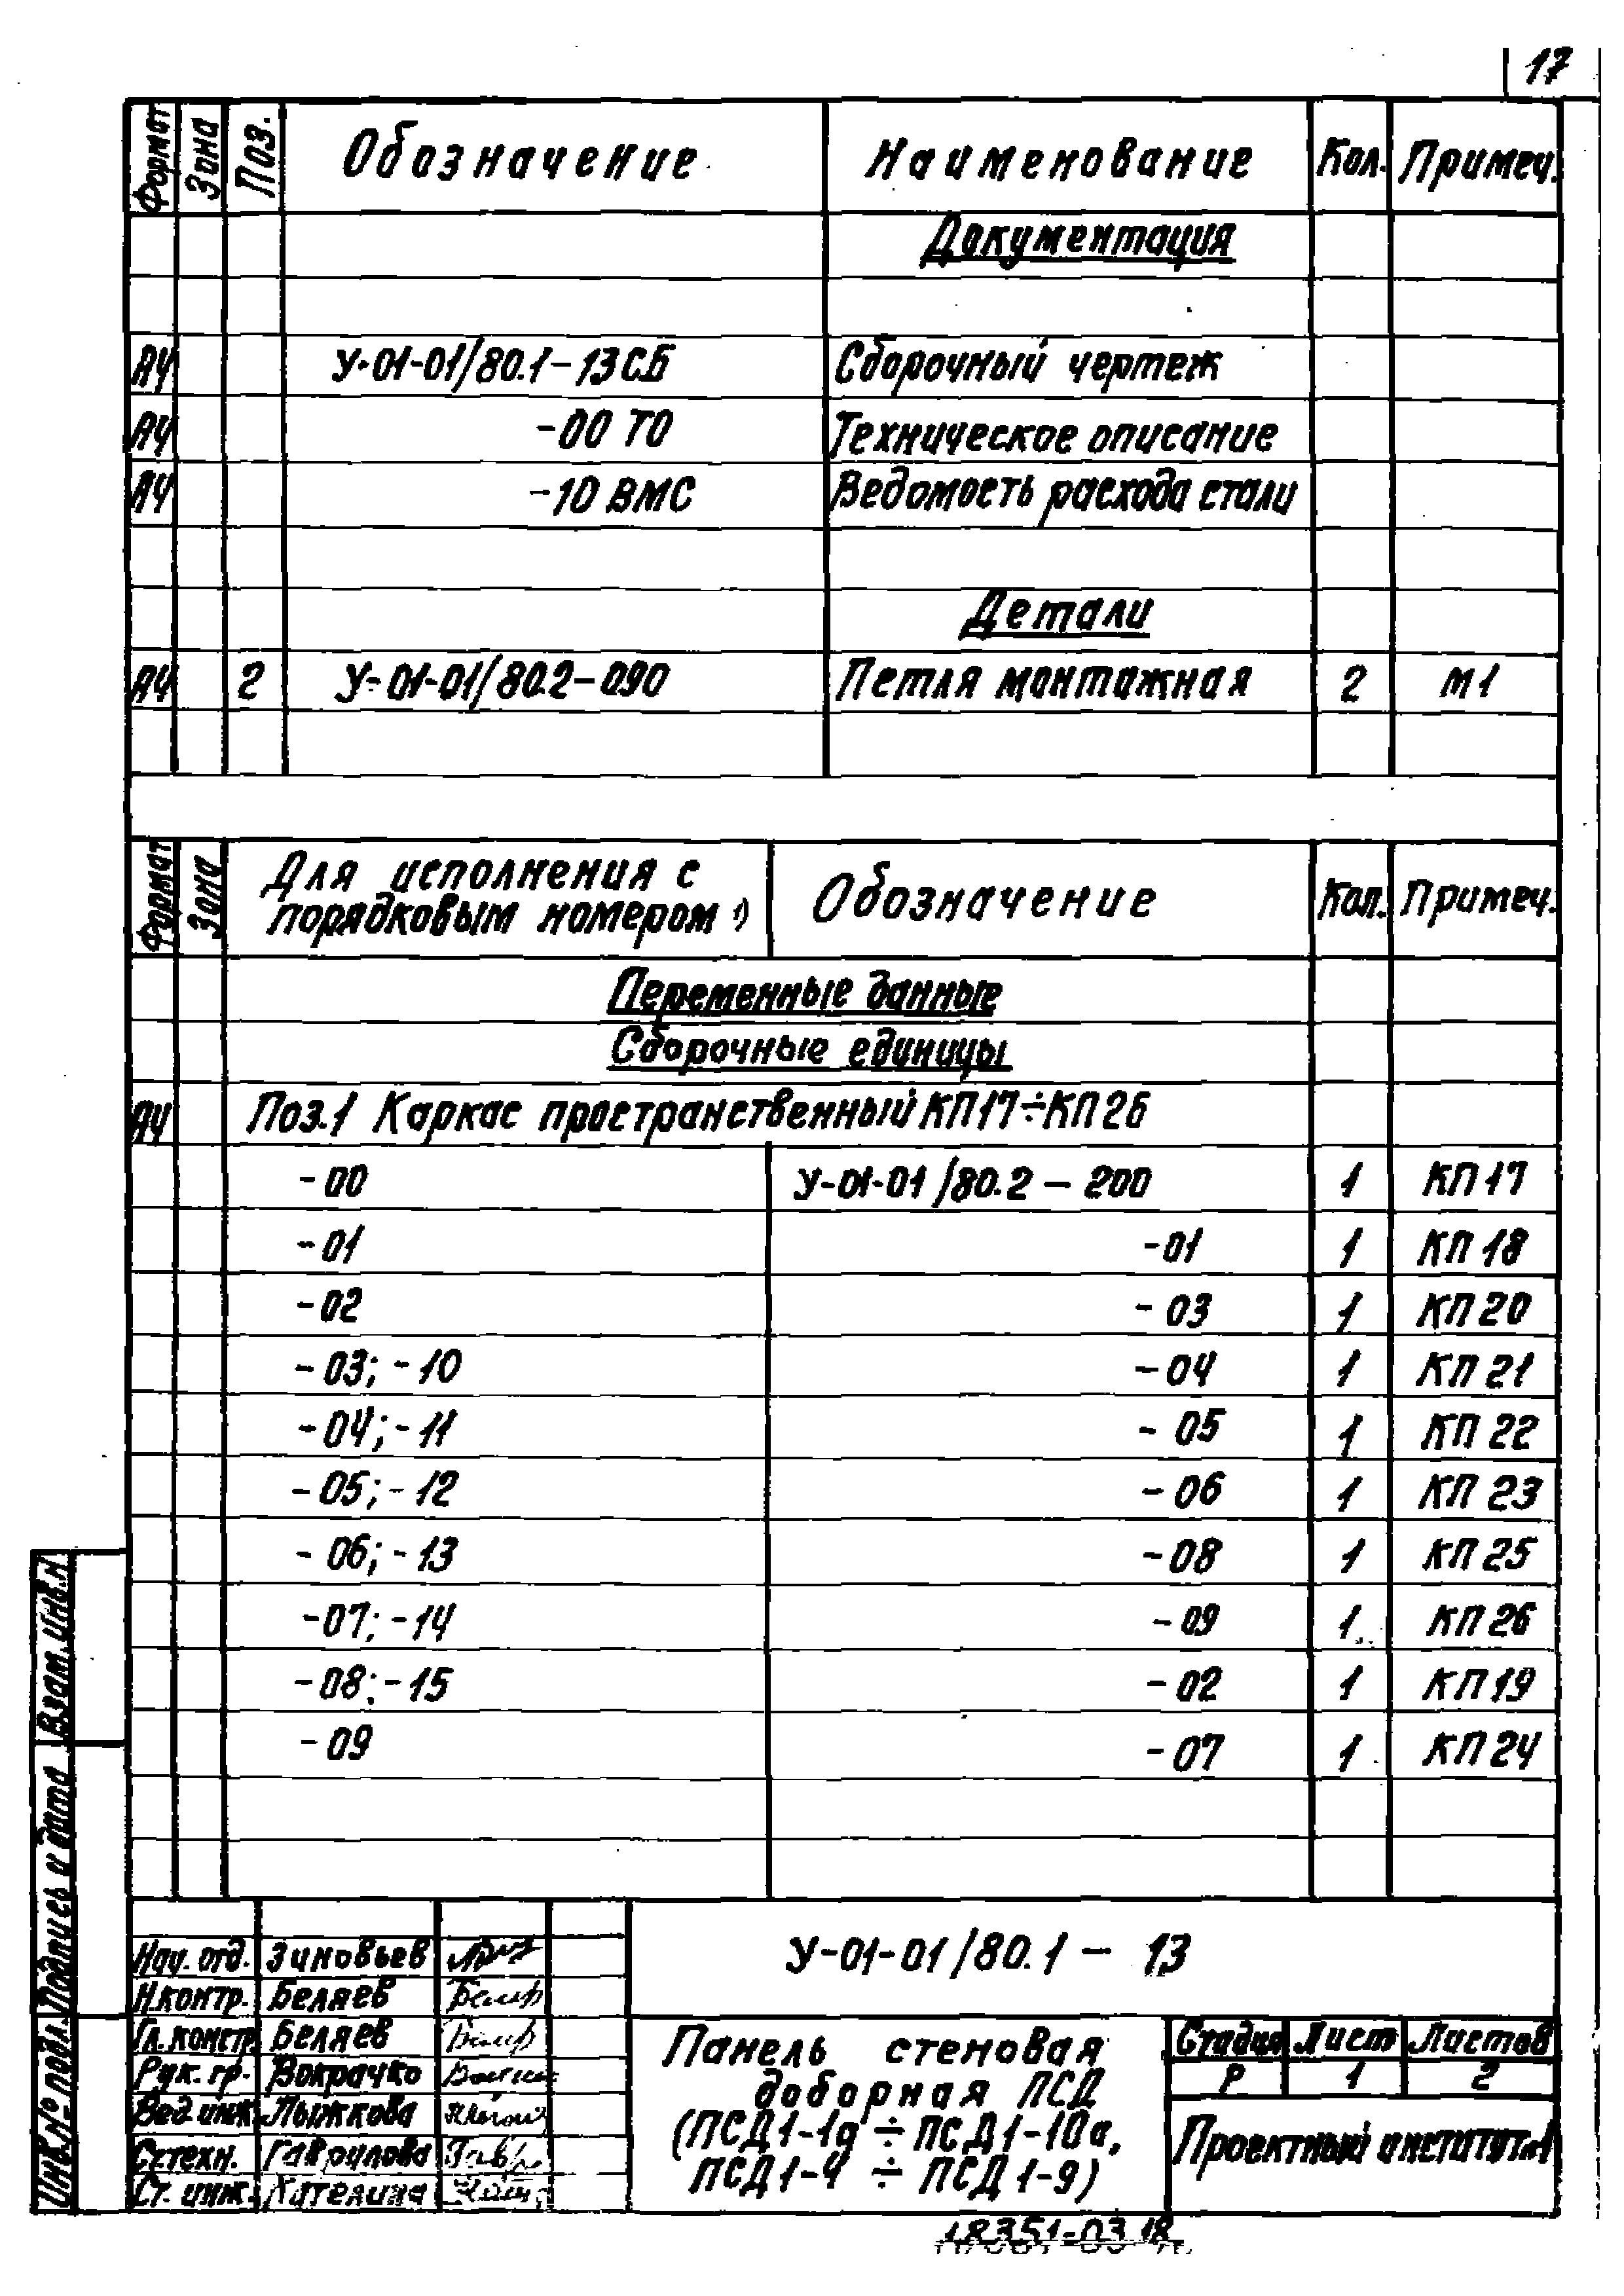 17
Формат Зона Поз. Обозначение Наименование Кол. Примеч.
Документация
А4 У-01-01/80.1-13СБ Сборочный чертеж
А4 -00 ТО Техническое описание
А4 -10 ВМС Ведомость расхода стали
Детали
А4 2 У-01-01/80.2-090 Петля монтажная 2 М1
Формат Зона Для исполнения с порядковым номером 1) Обозначение Кол. Примеч.
Переменные данные
Сборочные единицы
А4 Поз.1 Каркас пространственный КП17÷КП26
-00 У-01-01/80.2-200 1 КП17
-01 -01 1 КП18
-02 -03 1 КП20
-03; -10 -04 1 КП21
-04; -11 -05 1 КП22
-05; -12 -06 1 КП23
-06; -13 -08 1 КП25
-07; -14 -09 1 КП26
-08; -15 -02 1 КП19
-09 -07 1 КП24
Взам. инв.N
Подпись и дата
Инв.№ подл.
У-01-01/80.1-13
Нач. отд. Зиновьев
Н.контр. Беляев
Гл.констр. Беляев
Рук. гр. Вокрачко
Вед.инж. Лыжкова
Ст.техн. Гаврилова
Ст. инж. Кателина
Панель стеновая
доборная ПСД
(ПСД1-1а ÷ ПСД1-10а,
ПСД1-4 ÷ ПСД1-9)
Стадия Лист Листов
Р 1 2
Проектный институт №1
18351-03 18